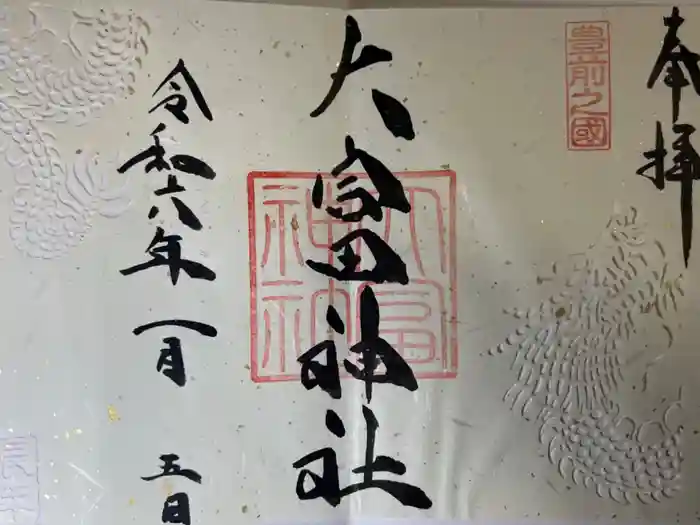 奉拝
豊前之國
大富神社
大富神社
令和六年一月五日